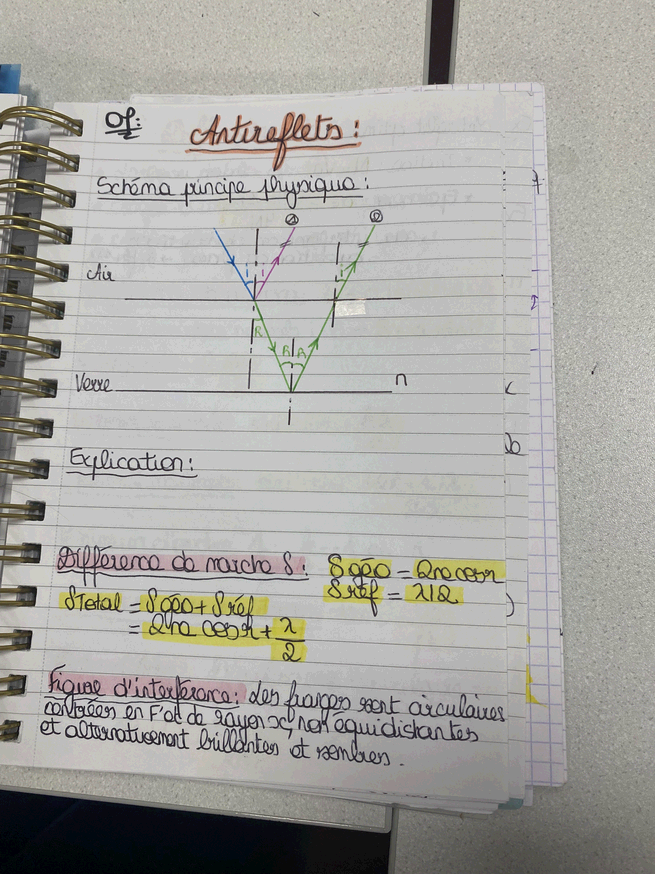 OP:
Antireflets :
Schéma principe physique :
① ②
Air
R
R R
Verre n
Explication :
Différence de marche δ : δ géo = 2ne cos r
δ réf = λ/2
δ Total = δ géo + δ réf
= 2ne cos r + λ/2
Figure d'interférence : Les franges sont circulaires
centrées en F' de rayon x, non équidistantes
et alternativement brillantes et sombres.